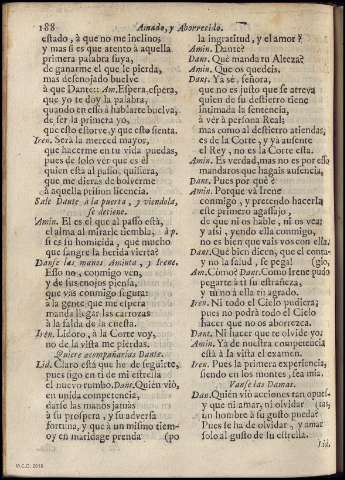 188 Amado, y Aborrecido.
estado, à que no me inclino;
y mas si es que atento à aquella
primera palabra suya,
de ganarme el que le pierda,
mas desenojado buelve
à que Dante:: Am. Espera, espera,
que yo te doy la palabra,
quando en esso à hablarte buelva,
de ser la primera yo,
que esto estorve, y que esto sienta.
Iren. Será la merced mayor,
que hacerme en tu vida puedas,
pues de solo ver que es él
quien està al passo, quisiera,
que me dieras de bolverme
à aquella primer licencia.
Sale Dante à la puerta, y viendola,
se detiene.
Amin. El es el que al passo està,
el alma al mirarle tiembla, à p.
si es su homicida, què mucho
que sangre la herida vierta?
Danse las manos Aminta, y Irene.
Esso no, conmigo ven,
y de sus enojos piensa,
que vàs conmigo segura:
à la gente que me espera
manda llegar las carrozas
à la falda de la cuesta.
Iren. Lidoro, à la Corte voy,
no de la vista me pierdas.
Quiere acompañarlas Dante.
Lid. Claro està que he de seguirte,
pues sigo en ti de mi estrella
el nuevo rumbo. Dant. Quien viò,
en unida competencia,
darse las manos jamàs
à su prospera, y su adversa
fortuna, y que à un mismo tiem-
po en maridage prenda (po
la ingratitud, y el amor?
Amin. Dante?
Dant. Què manda tu Alteza?
Amin. Que os quedeis.
Dant. Ya sé, señora,
que no es justo que se atreva
quien de su destierro tiene
intimada la sentencia,
à vèr à persona Real;
mas como al destierro atiendas,
es de la Corte, y ya ausente
el Rey, no es la Corte esta.
Amin. Es verdad, mas no es por esso
mandaros que hagais ausencia,
Dant. Pues por què?
Amin. Porque và Irene
conmigo, y pretendo hacerla
este primero agassajo,
de que ni os hable, ni os vea;
y assi, yendo ella conmigo,
no es bien que vais vos con ella.
Dant. Què bien dicen, que el conta-
y no la salud, se pega! (gio,
Am. Còmo? Dant. Como Irene pudo
pegarte à ti su estrañeza,
y tu no à ella tu agrado.
Iren. Ni todo el Cielo pudiera;
pues no podrà todo el Cielo
hacer que no os aborrezca.
Dant. Ni hacer que te olvide yo.
Amin. Ya de nuestra competencia
està à la vista el examen.
Iren. Pues la primera experiencia,
siendo en los montes, sea mia.
Vanse las Damas.
Dant. Quien viò acciones tan opues-
y que ni amar, ni olvidar (tas,
un hombre à su gusto pueda?
Pues se ha de olvidar, y amar
solo al gusto de su estrella.
Lid.
M.C.D. 2018